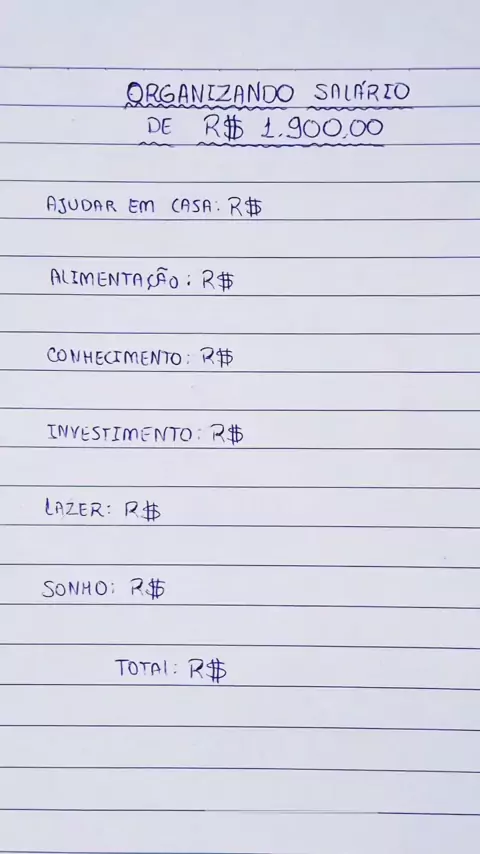 ORGANIZANDO SALÁRIO
DE R$ 1.900,00
AJUDAR EM CASA: R$
ALIMENTAÇÃO: R$
CONHECIMENTO: R$
INVESTIMENTO: R$
LAZER: R$
SONHO: R$
TOTAL: R$